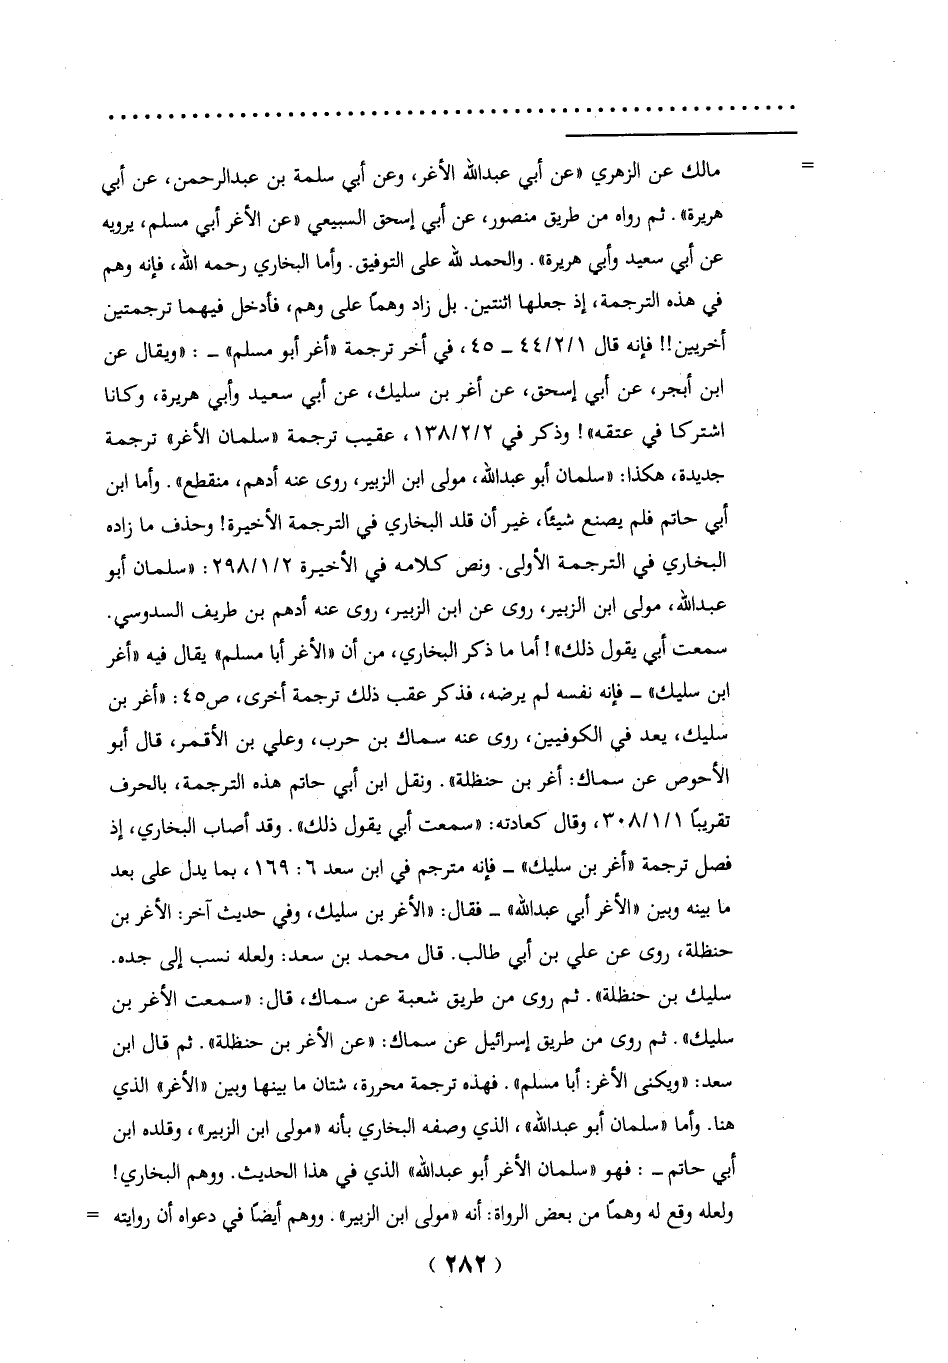 = مالك عن الزهري «عن أبي عبدالله الأغر، وعن أبي سلمة بن عبدالرحمن، عن أبي
هريرة». ثم رواه من طريق منصور، عن أبي إسحق السبيعي «عن الأغر أبي مسلم، يرويه
عن أبي سعيد وأبي هريرة». والحمد لله على التوفيق. وأما البخاري رحمه الله، فإنه وهم
في هذه الترجمة، إذ جعلها اثنتين. بل زاد وهمًا على وهم، فأدخل فيهما ترجمتين
أخريين!! فإنه قال ٤٤/٢/١ ــ ٤٥، في أخر ترجمة «أغر أبو مسلم» ــ : «ويقال عن
ابن أبجر، عن أبي إسحق، عن أغر بن سليك، عن أبي سعيد وأبي هريرة، وكانا
اشتركا في عتقه»! وذكر في ١٣٨/٢/٢، عقيب ترجمة «سلمان الأغر» ترجمة
جديدة، هكذا: «سلمان أبو عبدالله، مولى ابن الزبير، روى عنه أدهم، منقطع». وأما ابن
أبي حاتم فلم يصنع شيئًا، غير أن قلد البخاري في الترجمة الأخيرة! وحذف ما زاده
البخاري في الترجمة الأولى. ونص كلامه في الأخيرة ٢٩٨/١/٢: «سلمان أبو
عبدالله، مولى ابن الزبير، روى عن ابن الزبير، روى عنه أدهم بن طريف السدوسي.
سمعت أبي يقول ذلك»! أما ما ذكر البخاري، من أن «الأغر أبا مسلم» يقال فيه «أغر
ابن سليك» ــ فإنه نفسه لم يرضه، فذكر عقب ذلك ترجمة أخرى، ص٤٥: «أغر بن
سليك، يعد في الكوفيين، روى عنه سماك بن حرب، وعلي بن الأقمر، قال أبو
الأحوص عن سماك: أغر بن حنظلة». ونقل ابن أبي حاتم هذه الترجمة، بالحرف
تقريبًا ٣٠٨/١/١، وقال كعادته: «سمعت أبي يقول ذلك». وقد أصاب البخاري، إذ
فصل ترجمة «أغر بن سليك» ــ فإنه مترجم في ابن سعد ٦: ١٦٩، بما يدل على بعد
ما بينه وبين «الأغر أبي عبدالله» ــ فقال: «الأغر بن سليك، وفي حديث آخر: الأغر بن
حنظلة، روى عن علي بن أبي طالب. قال محمد بن سعد: ولعله نسب إلى جده.
سليك بن حنظلة». ثم روى من طريق شعبة عن سماك، قال: «سمعت الأغر بن
سليك». ثم روى من طريق إسرائيل عن سماك: «عن الأغر بن حنظلة». ثم قال ابن
سعد: «ويكنى الأغر: أبا مسلم». فهذه ترجمة محررة، شتان ما بينها وبين «الأغر» الذي
هنا. وأما «سلمان أبو عبدالله»، الذي وصفه البخاري بأنه «مولى ابن الزبير»، وقلده ابن
أبي حاتم ــ : فهو «سلمان الأغر أبو عبدالله» الذي في هذا الحديث. ووهم البخاري!
ولعله وقع له وهمًا من بعض الرواة: أنه «مولى ابن الزبير». ووهم أيضًا في دعواه أن روايته =
(٢٨٢)